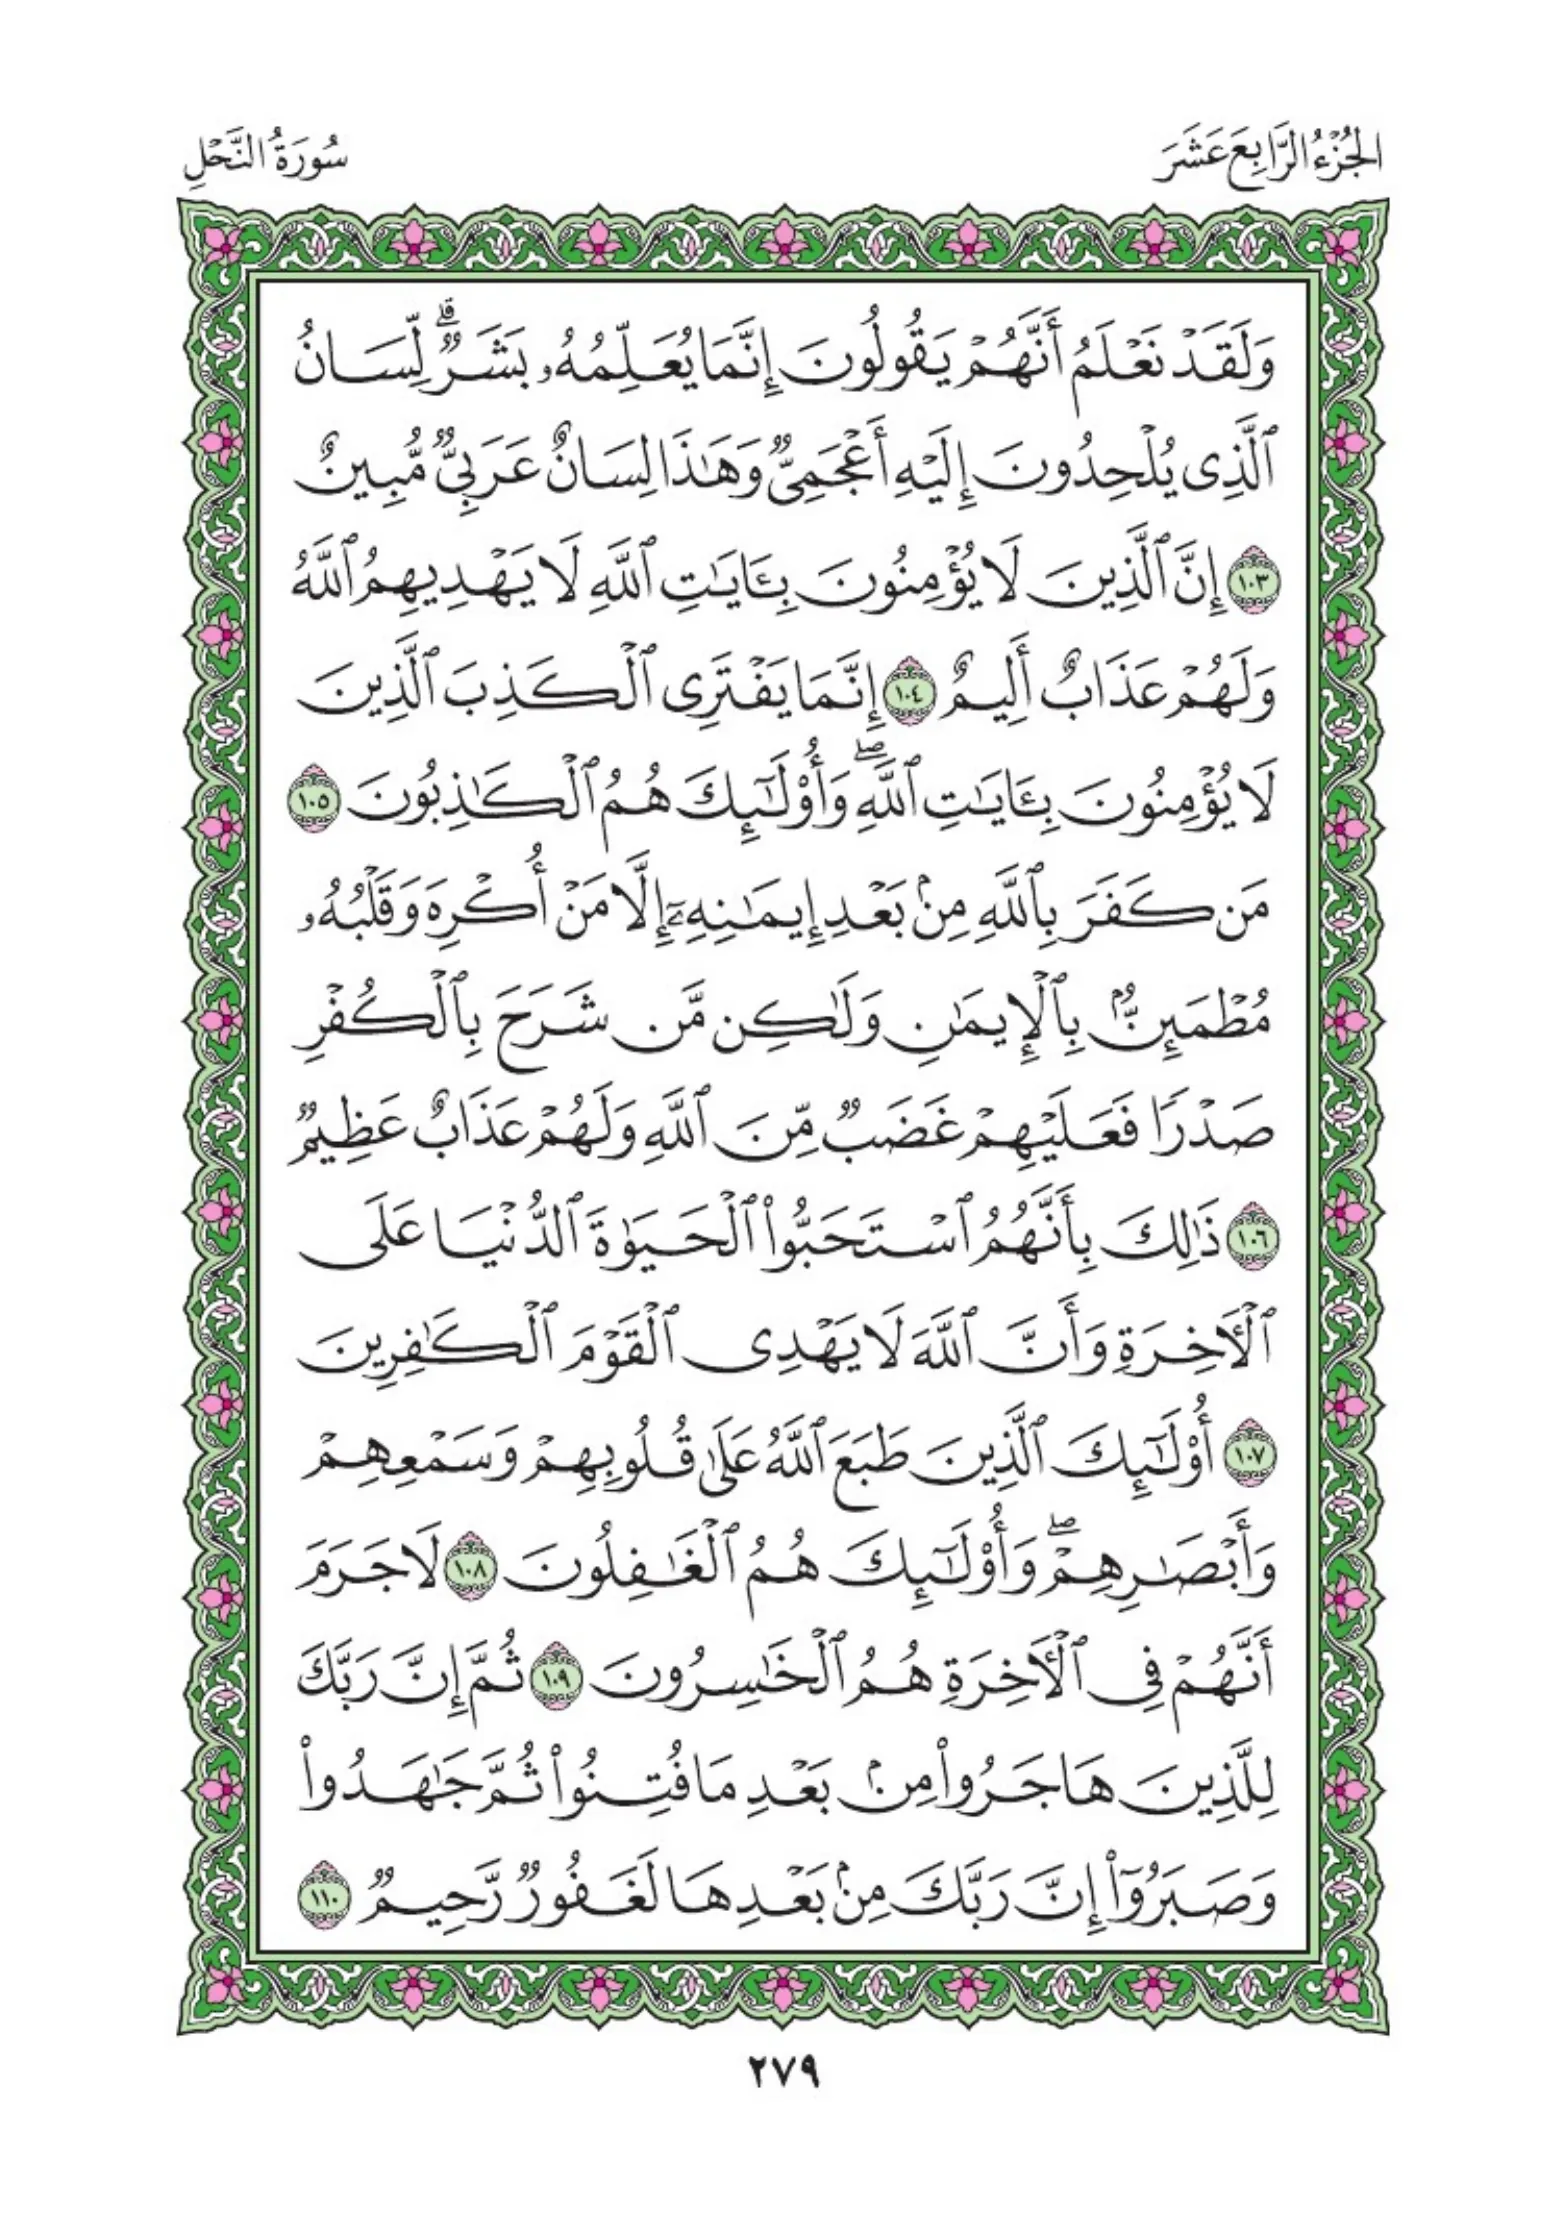 الجُزْءُ الرَّابِعَ عَشَرَ
سُورَةُ النَّحْلِ
وَلَقَدْ نَعْلَمُ أَنَّهُمْ يَقُولُونَ إِنَّمَا يُعَلِّمُهُۥ بَشَرٌۗ لِّسَانُ
ٱلَّذِى يُلْحِدُونَ إِلَيْهِ أَعْجَمِىٌّ وَهَٰذَا لِسَانٌ عَرَبِىٌّ مُّبِينٌ
١٠٣ إِنَّ ٱلَّذِينَ لَا يُؤْمِنُونَ بِـَٔايَٰتِ ٱللَّهِ لَا يَهْدِيهِمُ ٱللَّهُ
وَلَهُمْ عَذَابٌ أَلِيمٌ ١٠٤ إِنَّمَا يَفْتَرِى ٱلْكَذِبَ ٱلَّذِينَ
لَا يُؤْمِنُونَ بِـَٔايَٰتِ ٱللَّهِۖ وَأُو۟لَٰٓئِكَ هُمُ ٱلْكَٰذِبُونَ ١٠٥
مَن كَفَرَ بِٱللَّهِ مِنۢ بَعْدِ إِيمَٰنِهِۦٓ إِلَّا مَنْ أُكْرِهَ وَقَلْبُهُۥ
مُطْمَئِنٌّۢ بِٱلْإِيمَٰنِ وَلَٰكِن مَّن شَرَحَ بِٱلْكُفْرِ
صَدْرًا فَعَلَيْهِمْ غَضَبٌ مِّنَ ٱللَّهِ وَلَهُمْ عَذَابٌ عَظِيمٌ
١٠٦ ذَٰلِكَ بِأَنَّهُمُ ٱسْتَحَبُّوا۟ ٱلْحَيَوٰةَ ٱلدُّنْيَا عَلَى
ٱلْـَٔاخِرَةِ وَأَنَّ ٱللَّهَ لَا يَهْدِى ٱلْقَوْمَ ٱلْكَٰفِرِينَ
١٠٧ أُو۟لَٰٓئِكَ ٱلَّذِينَ طَبَعَ ٱللَّهُ عَلَىٰ قُلُوبِهِمْ وَسَمْعِهِمْ
وَأَبْصَٰرِهِمْۖ وَأُو۟لَٰٓئِكَ هُمُ ٱلْغَٰفِلُونَ ١٠٨ لَا جَرَمَ
أَنَّهُمْ فِى ٱلْـَٔاخِرَةِ هُمُ ٱلْخَٰسِرُونَ ١٠٩ ثُمَّ إِنَّ رَبَّكَ
لِلَّذِينَ هَاجَرُوا۟ مِنۢ بَعْدِ مَا فُتِنُوا۟ ثُمَّ جَٰهَدُوا۟
وَصَبَرُوٓا۟ إِنَّ رَبَّكَ مِنۢ بَعْدِهَا لَغَفُورٌ رَّحِيمٌ ١١٠
٢٧٩